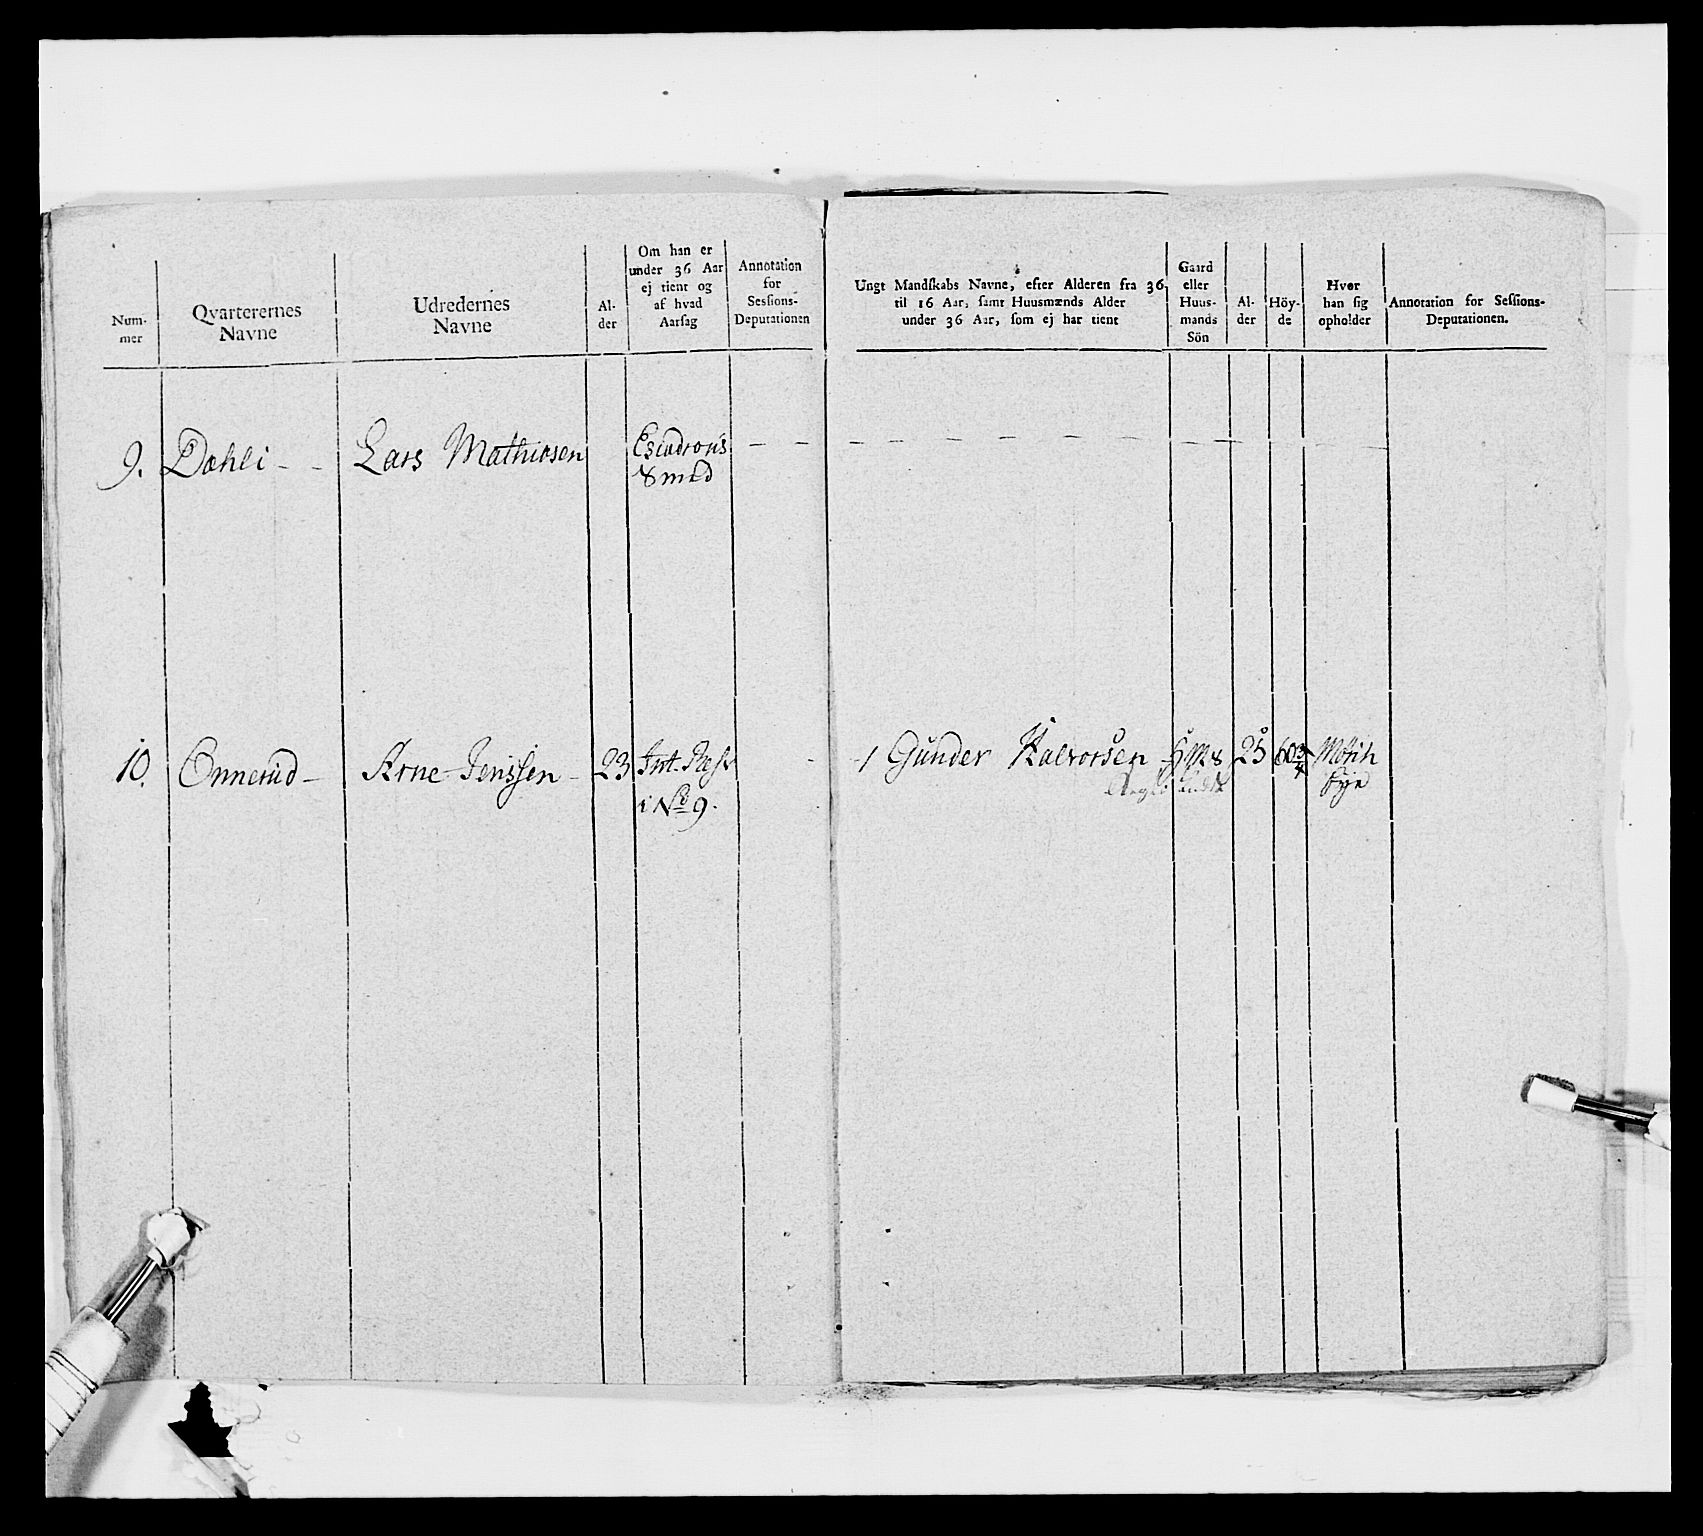 Num-
mer
Qvarterernes
Navne
Udredernes
Navne
Al-
der
Om han er
under 36 Aar
ej tient og
af hvad
Aarsag
Annotation
for
Sessions-
Deputationen
Ungt Mandskabs Navne, efter Alderen fra 36
til 16 Aar, samt Huusmænds Alder
under 36 Aar, som ej har tient
Gaard
eller
Huus-
mands
Sön
Al-
der
Höy-
de
Hvor
han sig
opholder
Annotation for Sessions-
Deputationen.
9. Dahli - - Lars Mathiasen Escadrons - - - - - - - - - -
Smed
10. Onnerud - Arne Jenssen - 23
i No 9.
1 Gunder Halvorsen 25 60 3/4
Eye